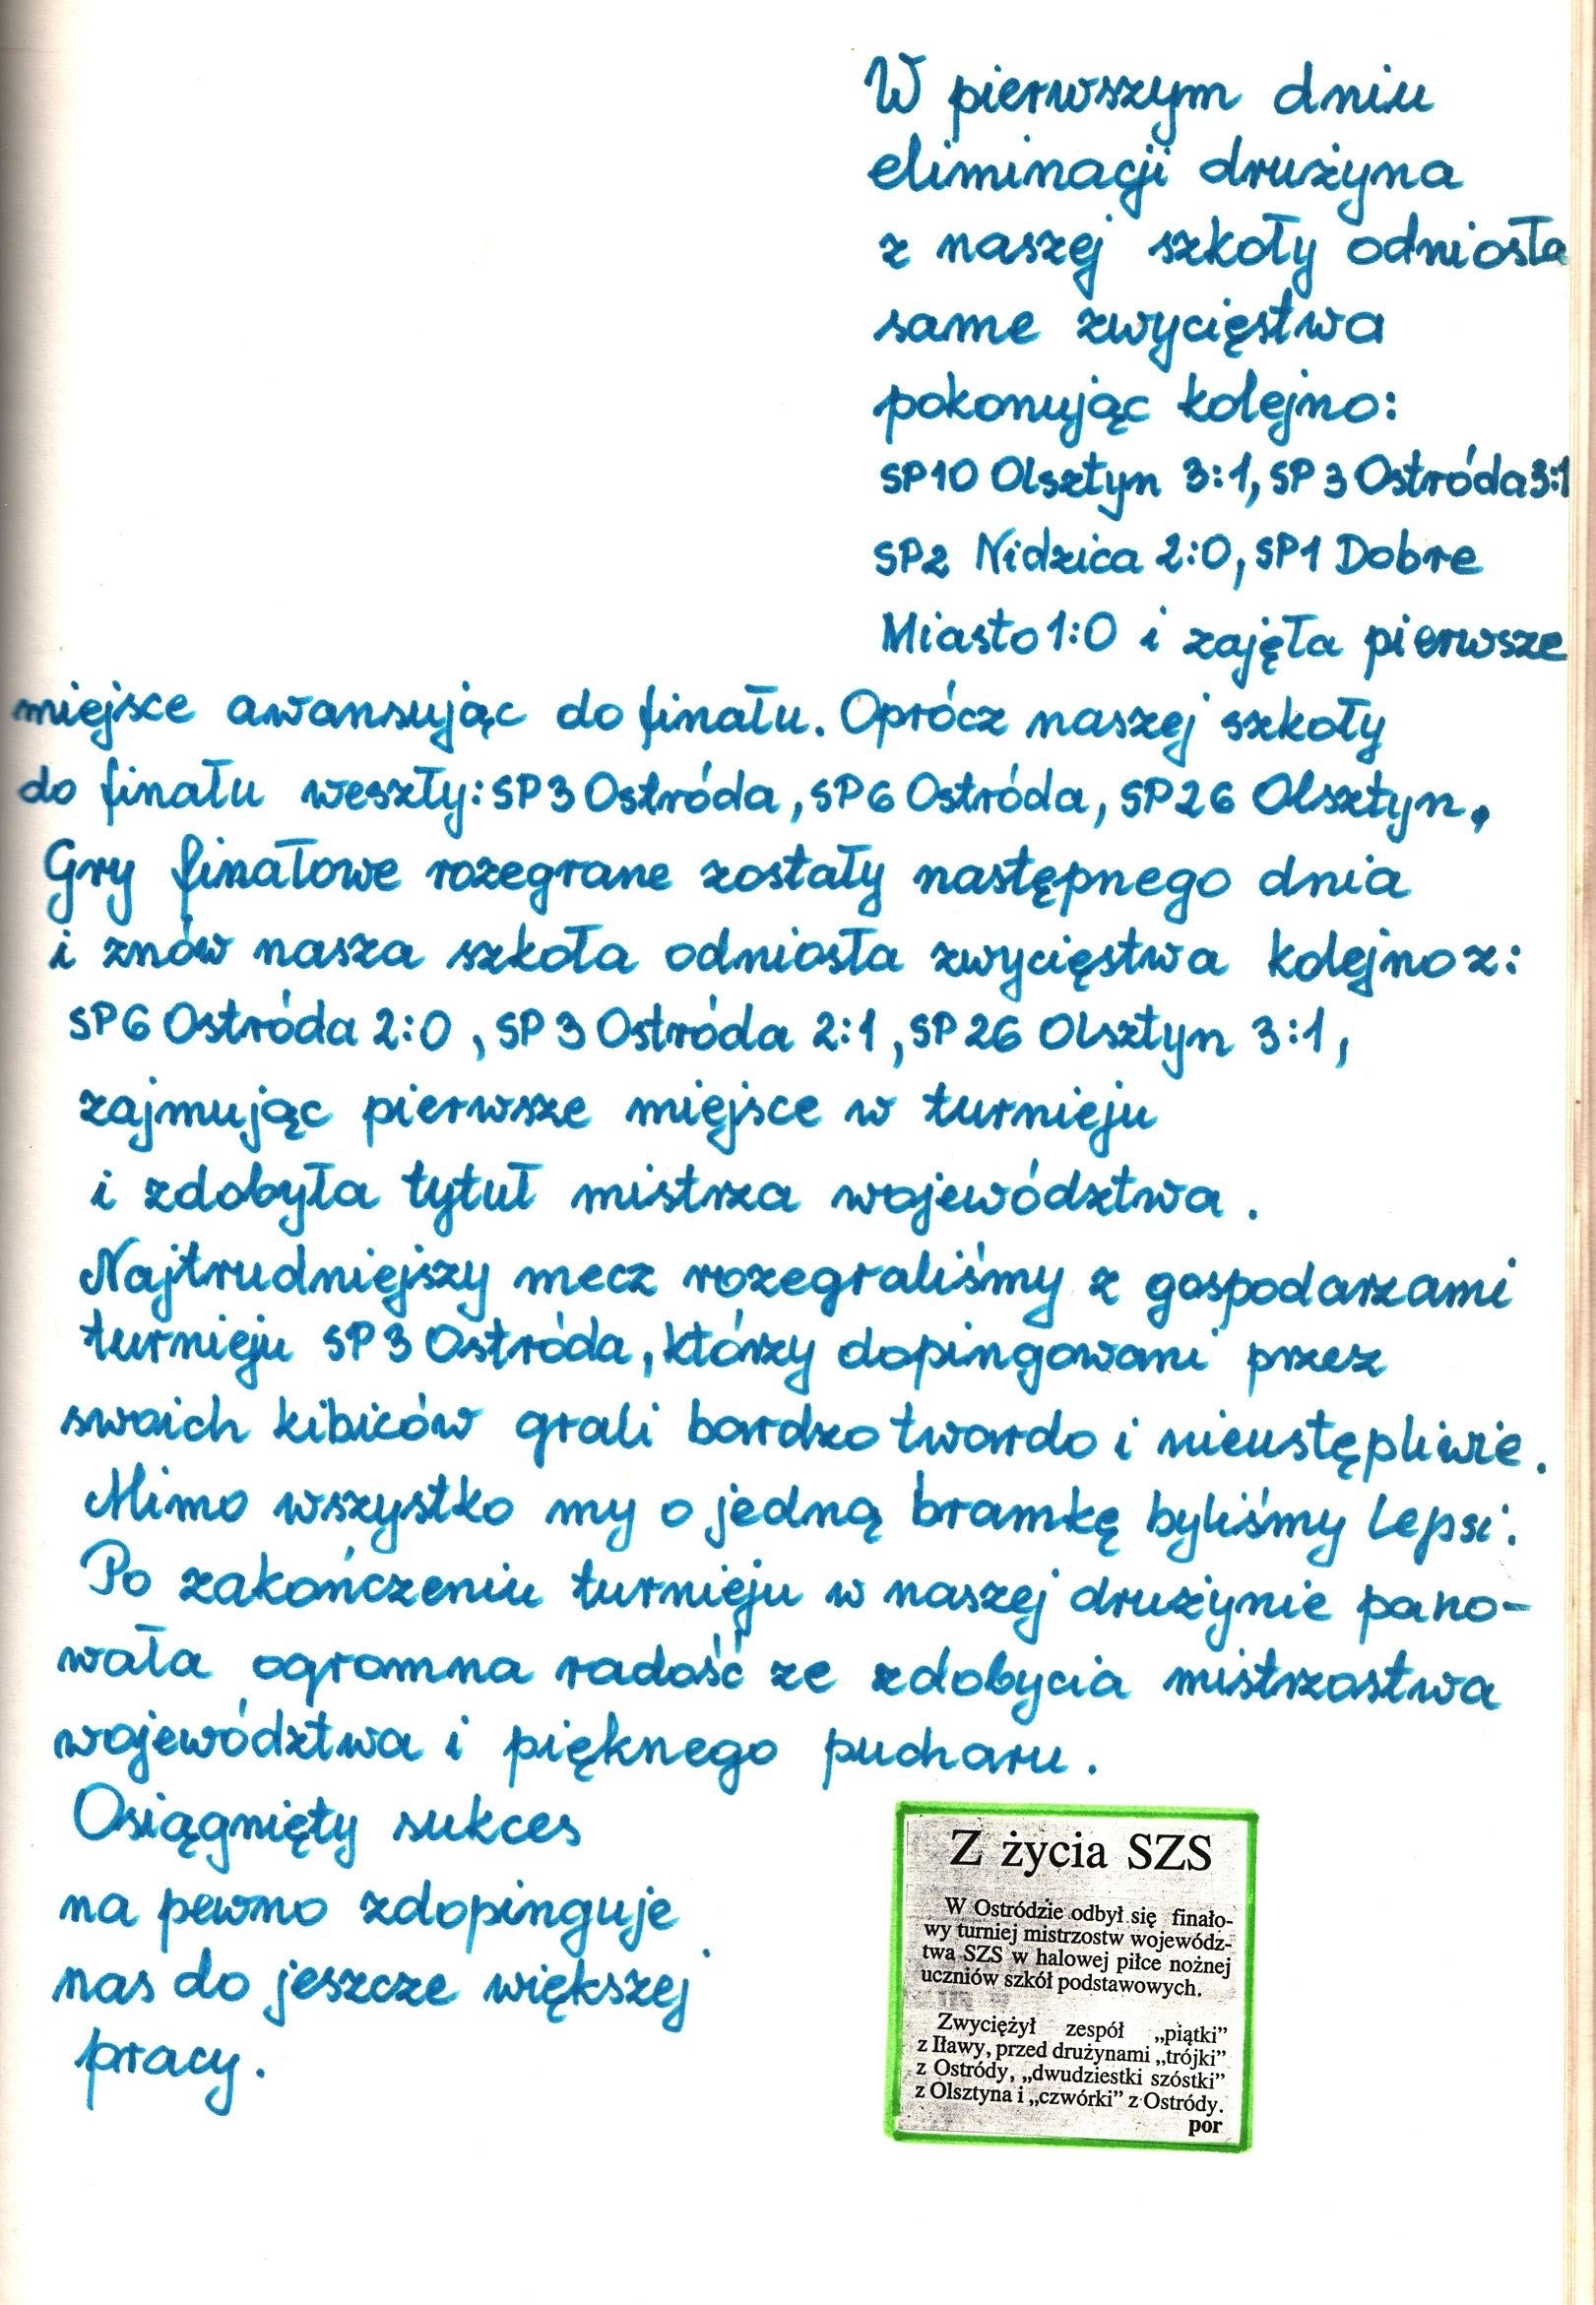 W pierwszym dniu
eliminacji drużyna
z naszej szkoły odniosła
same zwycięstwa
pokonując kolejno:
SP10 Olsztyn 3:1, SP 3 Ostróda 3:1
SP2 Nidzica 2:0, SP1 Dobre
Miasto 1:0 i zajęła pierwsze
miejsce awansując do finału. Oprócz naszej szkoły
do finału weszły: SP3 Ostróda, SP6 Ostróda, SP26 Olsztyn.
Gry finałowe rozegrane zostały następnego dnia
i znów nasza szkoła odniosła zwycięstwa kolejno z:
SP6 Ostróda 2:0, SP 3 Ostróda 2:1, SP 26 Olsztyn 3:1,
zajmując pierwsze miejsce w turnieju
i zdobyła tytuł mistrza województwa.
Najtrudniejszy mecz rozegraliśmy z gospodarzami
turnieju SP3 Ostróda, którzy dopingowani przez
swoich kibiców grali bardzo twardo i nieustępliwie.
Mimo wszystko my o jedną bramkę byliśmy lepsi.
Po zakończeniu turnieju w naszej drużynie pano-
wała ogromna radość ze zdobycia mistrzostwa
województwa i pięknego pucharu.
Osiągnięty sukces
na pewno zdopinguje
nas do jeszcze większej
pracy.
Z życia SZS
W Ostródzie odbył się finało-
wy turniej mistrzostw wojewódz-
twa SZS w halowej piłce nożnej
uczniów szkół podstawowych.
Zwyciężył zespół „piątki”
z Iławy, przed drużynami „trójki”
z Ostródy, „dwudziestki szóstki”
z Olsztyna i „czwórki” z Ostródy.
por